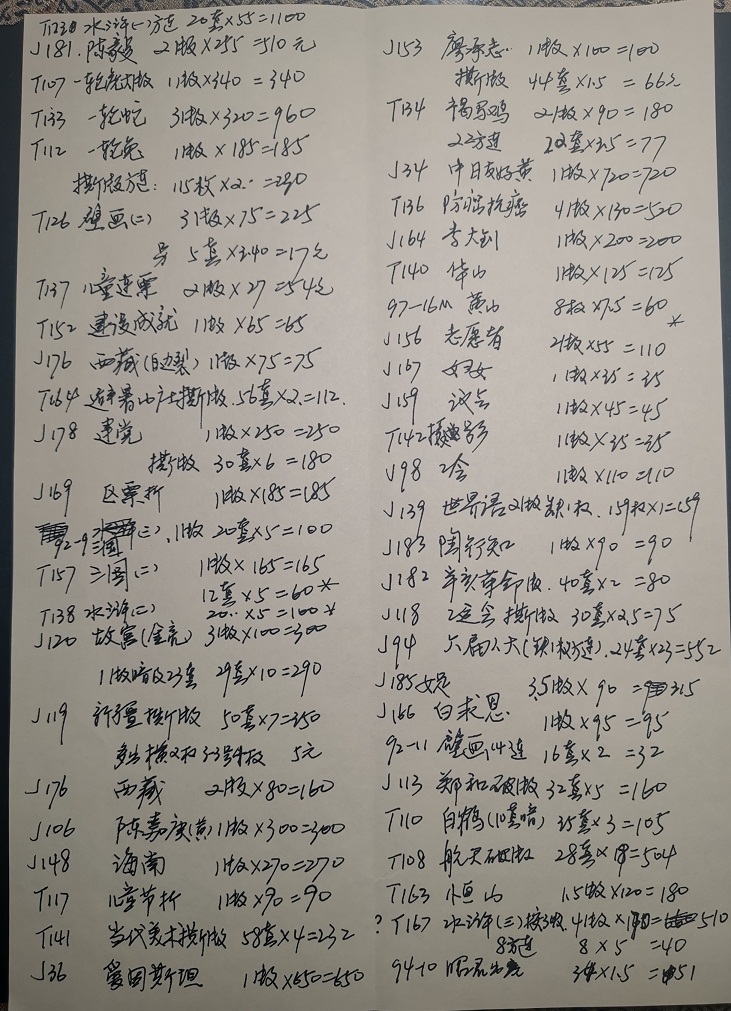 T123 水浒(一)方连 20套×55=1100
J181. 陈毅 2版×255=510元
T107 一轮虎大版 1版×340=340
T133 一轮蛇 3版×320=960
T112 一轮兔 1版×185=185
撕版方连: 115枚×2.=230
T126 壁画(二) 3版×75=225
另 5套×3.40=17元
T137 儿童连票 2版×27=54元
T152 建设成就 1版×65=65
J176 西藏(自边裂) 1版×75=75
T164 避暑山庄撕版. 56套×2.=112.
J178 建党 1版×250=250
撕版 30套×6=180
J169 区票折 1版×185=185
92-9 三国(三). 1版 20套×5=100
T157 三国(二) 1版×165=165
12套×5=60*
T138 水浒(二) 20..×5=100*
J120 故宫(全亮) 3版×100=300
1版暗及23套 29套×10=290
J119 新疆撕版 50套×7=350
多出横2枚 5元
J176 西藏 2版×80=160
J106 陈嘉庚(黄) 1版×300=300
J148 海南 1版×270=270
T117 儿童节折 1版×90=90
T141 当代美术撕版 58套×4=232
J36 爱因斯坦 1版×650=650
J153 廖承志 1版×100=100
撕版 44套×1.5=66元
T134 褐马鸡 2版×90=180
22方连 22套×3.5=77
J34 中日友好黄 1版×720=720
T136 防癌抗癌 4版×130=520
J164 李大钊 1版×200=200
T140 华山 1版×125=125
97-16M 黄山 8枚×7.5=60
J156 志愿者 2版×55=110*
J167 妇女 1版×35=35
J159 议会 1版×45=45
T142 摄影 1版×35=35
J98 2会 1版×110=110
J139 世界语2版缺1枚. 159枚×1=159
J183 陶行知 1版×90=90
J182 辛亥革命版. 40套×2=80
J118 2运会撕版 30套×2.5=75
J94 六届人大(缺1枚方连). 24套×23=552
J185 女足 3.5版×90=315
J166 白求恩 1版×95=95
92-11 壁画,4连 16套×2=32
J113 郑和破版 32套×5=160
T110 白鹤(10套暗) 35套×3=105
T108 航天破版 28套×18=504
T163 恒山 1.5版×120=180
? T167 水浒(三)撕3版. 4版× =510
8方连 8×5=40
94-10 昭君出塞 34×1.5=51